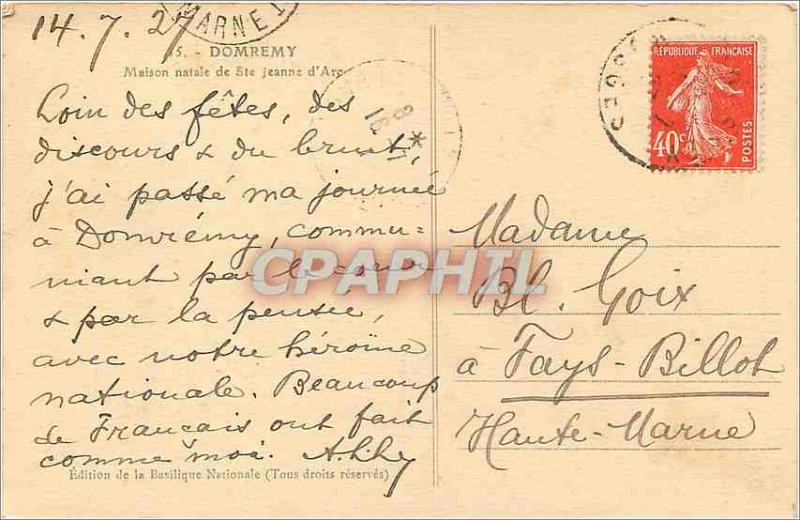 14.7.27
MARNE
5. - DOMREMY
Maison natale de Ste Jeanne d'Arc
Loin des fêtes, des
discours & du bruit,
j'ai passé ma journée
à Domrémy, commu=
niant par le cœur
& par la pensée,
avec notre héroïne
nationale. Beaucoup
de Français ont fait
comme moi.
Edition de la Basilique Nationale (Tous droits réservés)
RÉPUBLIQUE FRANÇAISE
40c
POSTES
VOSGES
Madame
Bl. Goix
à Fays-Billot
Haute-Marne
CPAPHIL